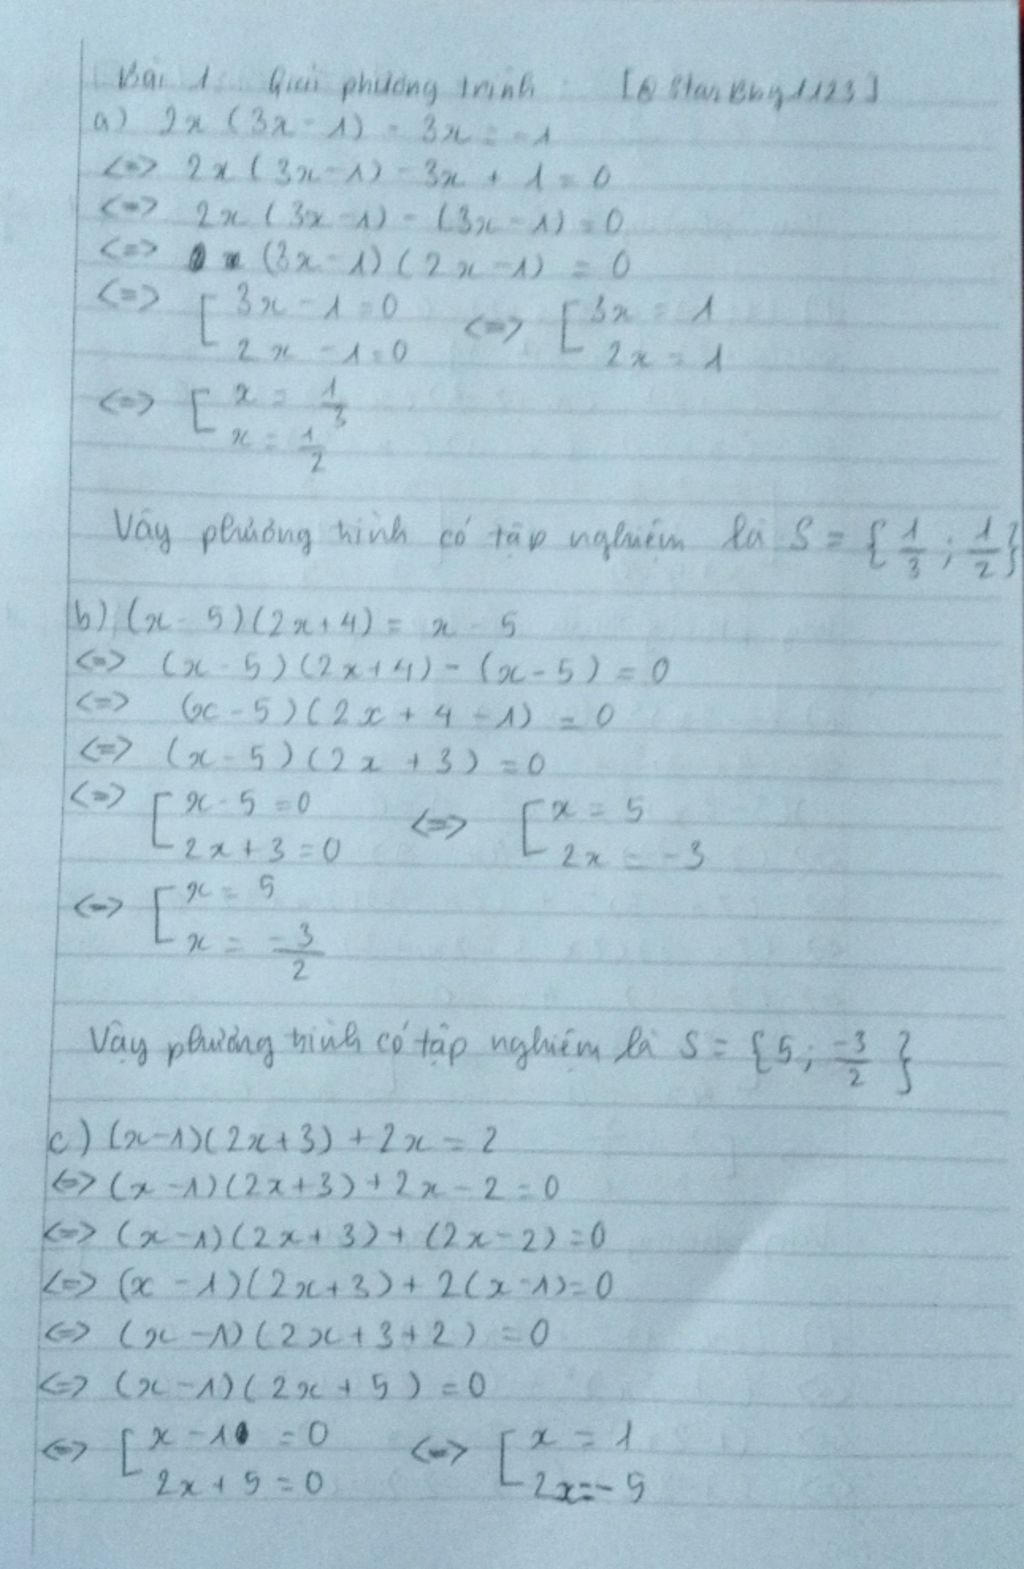 Bài 1. Giải phương trình [@StarBby1123]
a) 2x(3x - 1) - 3x = -1
<=> 2x(3x-1) - 3x + 1 = 0
<=> 2x(3x-1) - (3x-1) = 0
<=> (3x-1)(2x-1) = 0
<=> [ 3x-1=0 <=> [ 3x = 1
2x-1=0 2x = 1
<=> [ x = 1/3
x = 1/2
Vậy phương trình có tập nghiệm là S = { 1/3 ; 1/2 }
b) (x-5)(2x+4) = x-5
<=> (x-5)(2x+4) - (x-5) = 0
<=> (x-5)(2x+4-1) = 0
<=> (x-5)(2x+3) = 0
<=> [ x-5=0 <=> [ x = 5
2x+3=0 2x = -3
<=> [ x = 5
x = -3/2
Vậy phương trình có tập nghiệm là S = { 5 ; -3/2 }
c) (x-1)(2x+3) + 2x = 2
<=> (x-1)(2x+3) + 2x - 2 = 0
<=> (x-1)(2x+3) + (2x-2) = 0
<=> (x-1)(2x+3) + 2(x-1) = 0
<=> (x-1)(2x+3+2) = 0
<=> (x-1)(2x+5) = 0
<=> [ x-1 = 0 <=> [ x = 1
2x+5=0 2x=-5